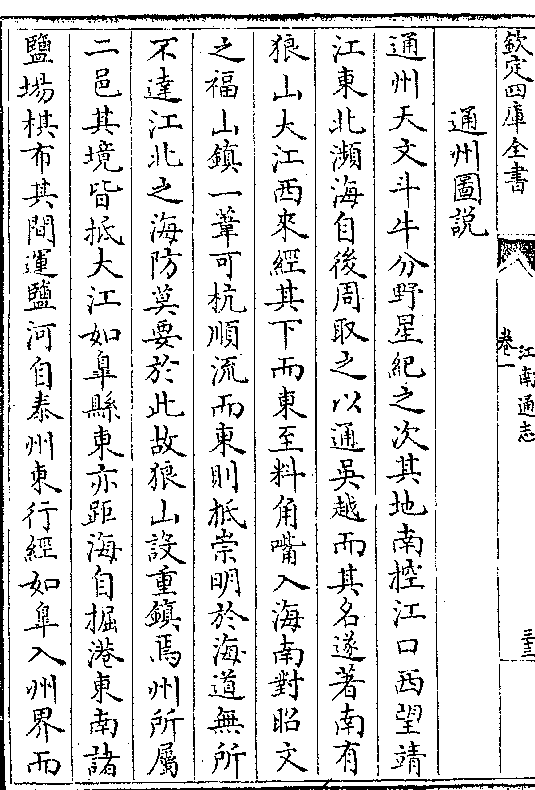 欽定四庫全書
卷一
江南通志
三十三
通州圖説
通州天文斗牛分野星紀之次其地南控江口西望靖
江東北瀕海自後周取之以通吳越而其名遂著南有
狼山大江西來經其下而東至料角嘴入海南對昭文
之福山鎮一葦可杭順流而東則抵崇明於海道無所
不達江北之海防莫要於此故狼山設重鎮焉州所屬
二邑其境皆抵大江如臯縣東亦距海自掘港東南諸
鹽場棋布其間運鹽河自泰州東行經如臯入州界而